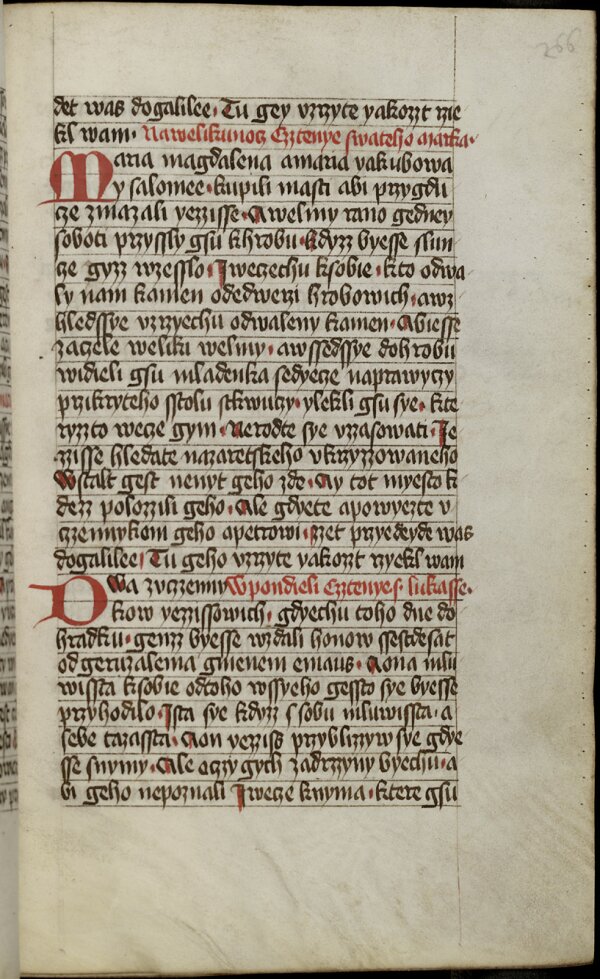 266
det was dogalilee · Tu gey vzrzyte yakozzt rzie
kl wam · Nawelikunocz Cztenye swateho marka ·
Maria magdalena amaria yakubowa
y salomee · kupili masti abi przygdu
cze zmazali yezzisse · Awelmy rano gedney
soboti przyssly gsu khrobu · kdyzz byesse slun
cze gyzz wzesslo · Iweczechu ksobie · kto odwa
ly nam kamen odedwerzi hrobowich · awz
hledssye vzrzyechu odwaleny kamen · Abiesse
zaczele weliku welmy · awssedssye dohrobu
widieli gsu mladenka sedyecze naprawyczy
przikryteho sstolu stkwuczy · ylekli gsu sye · kte
ryzzto wecze gym · Nerodte sye vzasowati · Ie
zzisse hledate nazaretskeho vkrzyzzowaneho
Wstalt gest nenyt geho zde · Ay tot myesto k
dezz polozzili geho · Ale gdyete apowyezte v
czennykom geho apetrowi · zzet przyedeyde was
dogalilee · Tu geho vzrzyte yakozzt rzyekl wam
Dwa zuczenny W pondieli Cztenye s. lukasse ·
kow yezzissowich · gdyechu toho dne do
hradku · genzz byesse wzdali honow ssestdesat
od geruzalema gmenem emaus · Aona mlu
wissta ksobie odtoho wssyeho gessto sye byesse
przyhodilo · Ista sye kdyzz ssobu mluwissta · a
sebe tazassta · Aon yezziss przyblizzyw sye gdye
sse snymy · Ale oczzy gych zadrzzyny byechu · a
bi geho nepoznali Iwecze knyma · ktere gsu